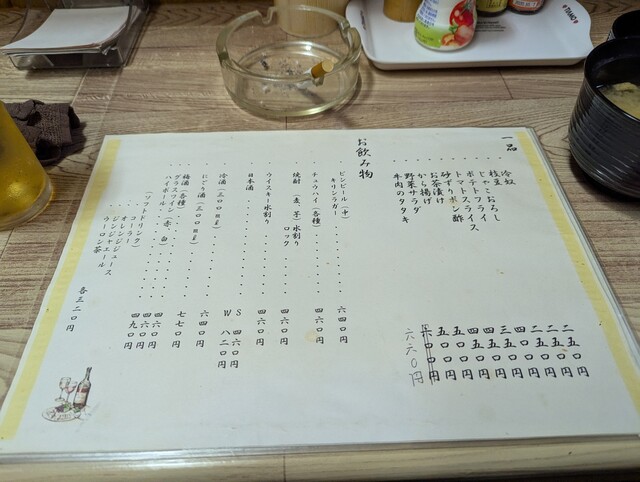 一品
・冷奴 二五〇円
・枝豆 二五〇円
・じゃこおろし 二五〇円
・ポテトフライ 四〇〇円
・トマトスライス 三五〇円
・砂ずりポン酢 四五〇円
・お茶漬け 四五〇円
・から揚げ 五〇〇円
・野菜サラダ 五〇〇円
・牛肉のタタキ 六六〇円
お飲み物
ビンビール（中）
キリンラガー 六四〇円
チュウハイ（各種） 四六〇円
焼酎（麦、芋）水割り
ロック 四六〇円
ウイスキー水割り 四六〇円
日本酒 S 四六〇円
W 八二〇円
冷酒（三〇〇ml） 六四〇円
にごり酒（三〇〇ml） 七七〇円
梅酒（各種） 四六〇円
グラスワイン（赤、白） 四六〇円
ハイボール 四九〇円
（ソフトドリンク）
・コーラー
・オレンジジュース
・ジンジャエール
・ウーロン茶 各三二〇円